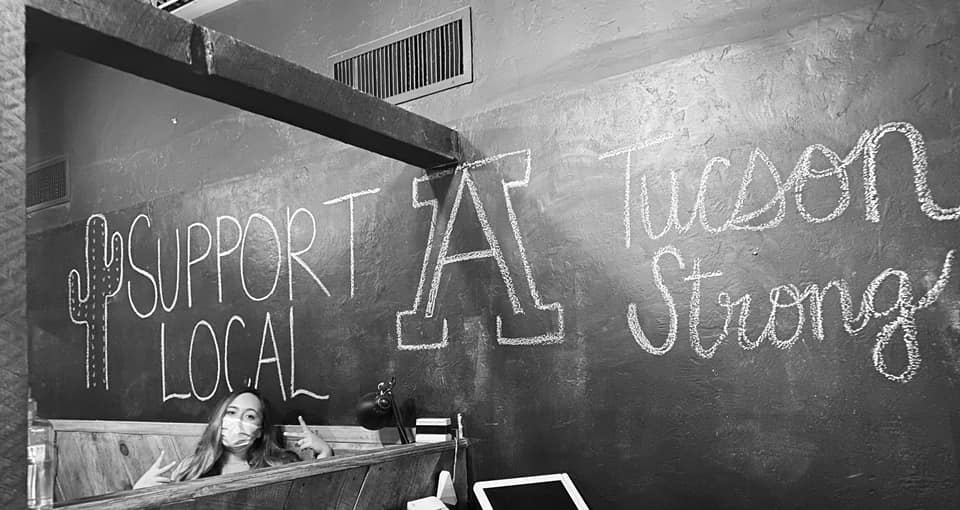 SUPPORT
LOCAL
A
Tucson
Strong